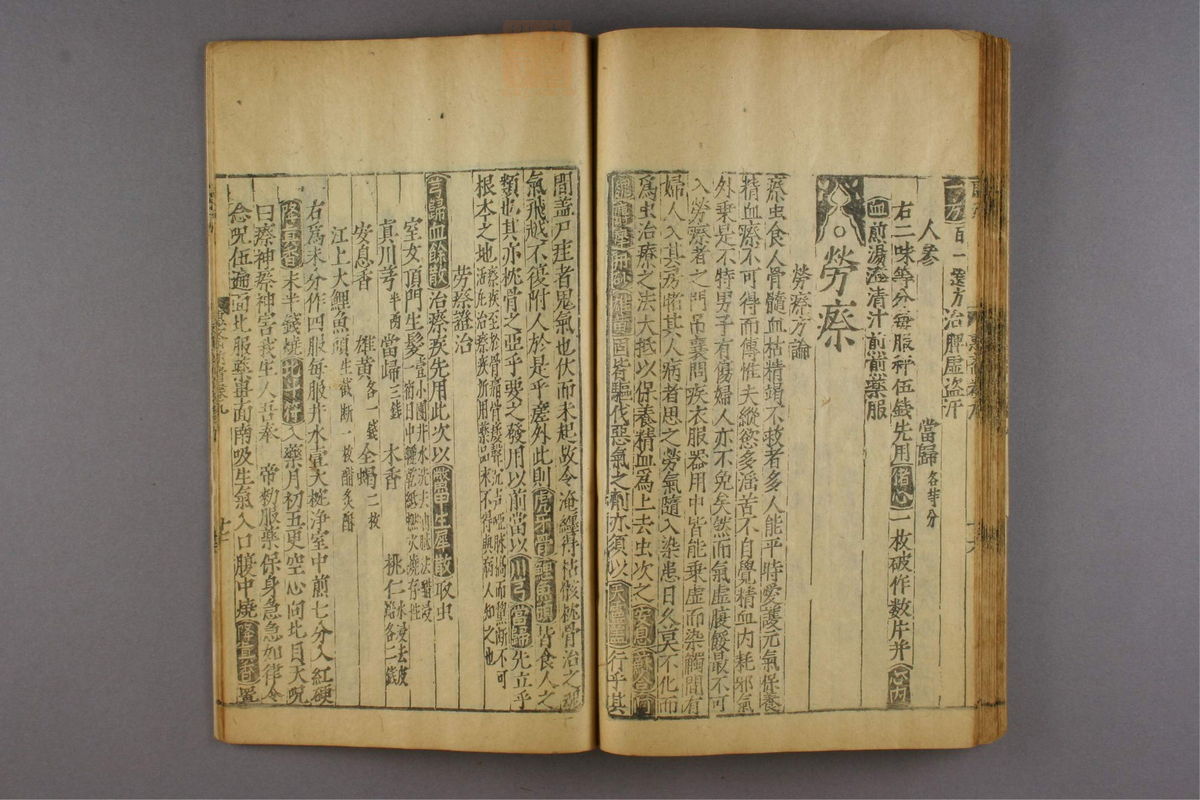 百一選方治脾虛盜汗
人參 當歸各等分
右二味等分每服秤伍錢先用猪心一枚破作數片并心內
血煎湯澄清汁煎前藥服
勞瘵
勞瘵方論
瘵虫食人骨髓血枯精竭不救者多人能平時愛護元氣保養
精血瘵不可得而傳惟夫縱慾多淫苦不自覺精血內耗邪氣
外乗是不特男子有傷婦人亦不免矣然而氣虛腹餒最不可
入勞瘵者之門吊喪問疾衣服器用中皆能乗虛而染觸間有
婦人入其房覩其人病者思之勞氣隨入染患日久莫不化而
爲虫治瘵之法大抵以保養精血爲上去虫次之安息蘇合
固皆驅伐惡氣之劑亦須以天靈蓋行乎其
間盖尸疰者鬼氣也伏而未起故令淹纏得枯骸枕骨治之魂
氣飛越不復附人於是乎瘥外此則虎牙骨鯉魚頭皆食人之
類也其亦枕骨之亞乎要之發用以前當以川芎當歸先立乎
根本之地瘵疾至於骨痛骨痿聲沉声啞脉㴜而槊斷不可活凡治瘵疾所用藥品不得與病人知之也
勞瘵證治
芎歸血餘散治瘵疾先用此次以鱉甲生犀散取虫
室女頂門生髮一小團井水洗去油膩法醋浸一宿日中曬乾紙燃火燒存性
真川芎半兩 當歸三錢 木香 桃仁水浸去皮焙各二錢
安息香 雄黃各一錢 全蝎二枚
江上大鯉魚頭生截斷一枚醋炙酥
右爲末分作四服每服井水壹大椀浄室中煎七分入紅硬
降真香末半錢燒北斗符入藥月初五更空心向北目天呪
曰瘵神瘵神害我生人吾奉 帝勑服藥保身急急如律令
念呪伍遍面北服藥畢面南吸生氣入口腹中燒降真香置